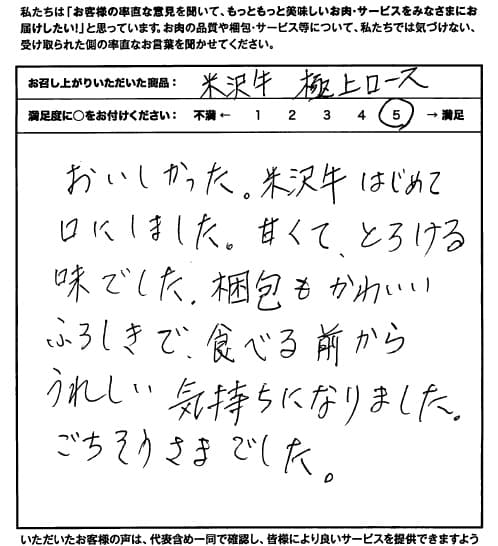 私たちは「お客様の率直な意見を聞いて、もっともっと美味しいお肉・サービスをみなさまにお
届けしたい!」と思っています。お肉の品質や梱包・サービス等について、私たちでは気づけない、
受け取られた側の率直なお言葉を聞かせてください。
お召し上がりいただいた商品： 米沢牛 極上ロース
満足度に○をお付けください： 不満 ← 1 2 3 4 5 → 満足
おいしかった。米沢牛はじめて
口にしました。甘くて、とろける
味でした。梱包もかわいい
ふろしきで、食べる前から
うれしい気持ちになりました。
ごちそうさまでした。
いただいたお客様の声は、代表含め一同で確認し、皆様により良いサービスを提供できますよう